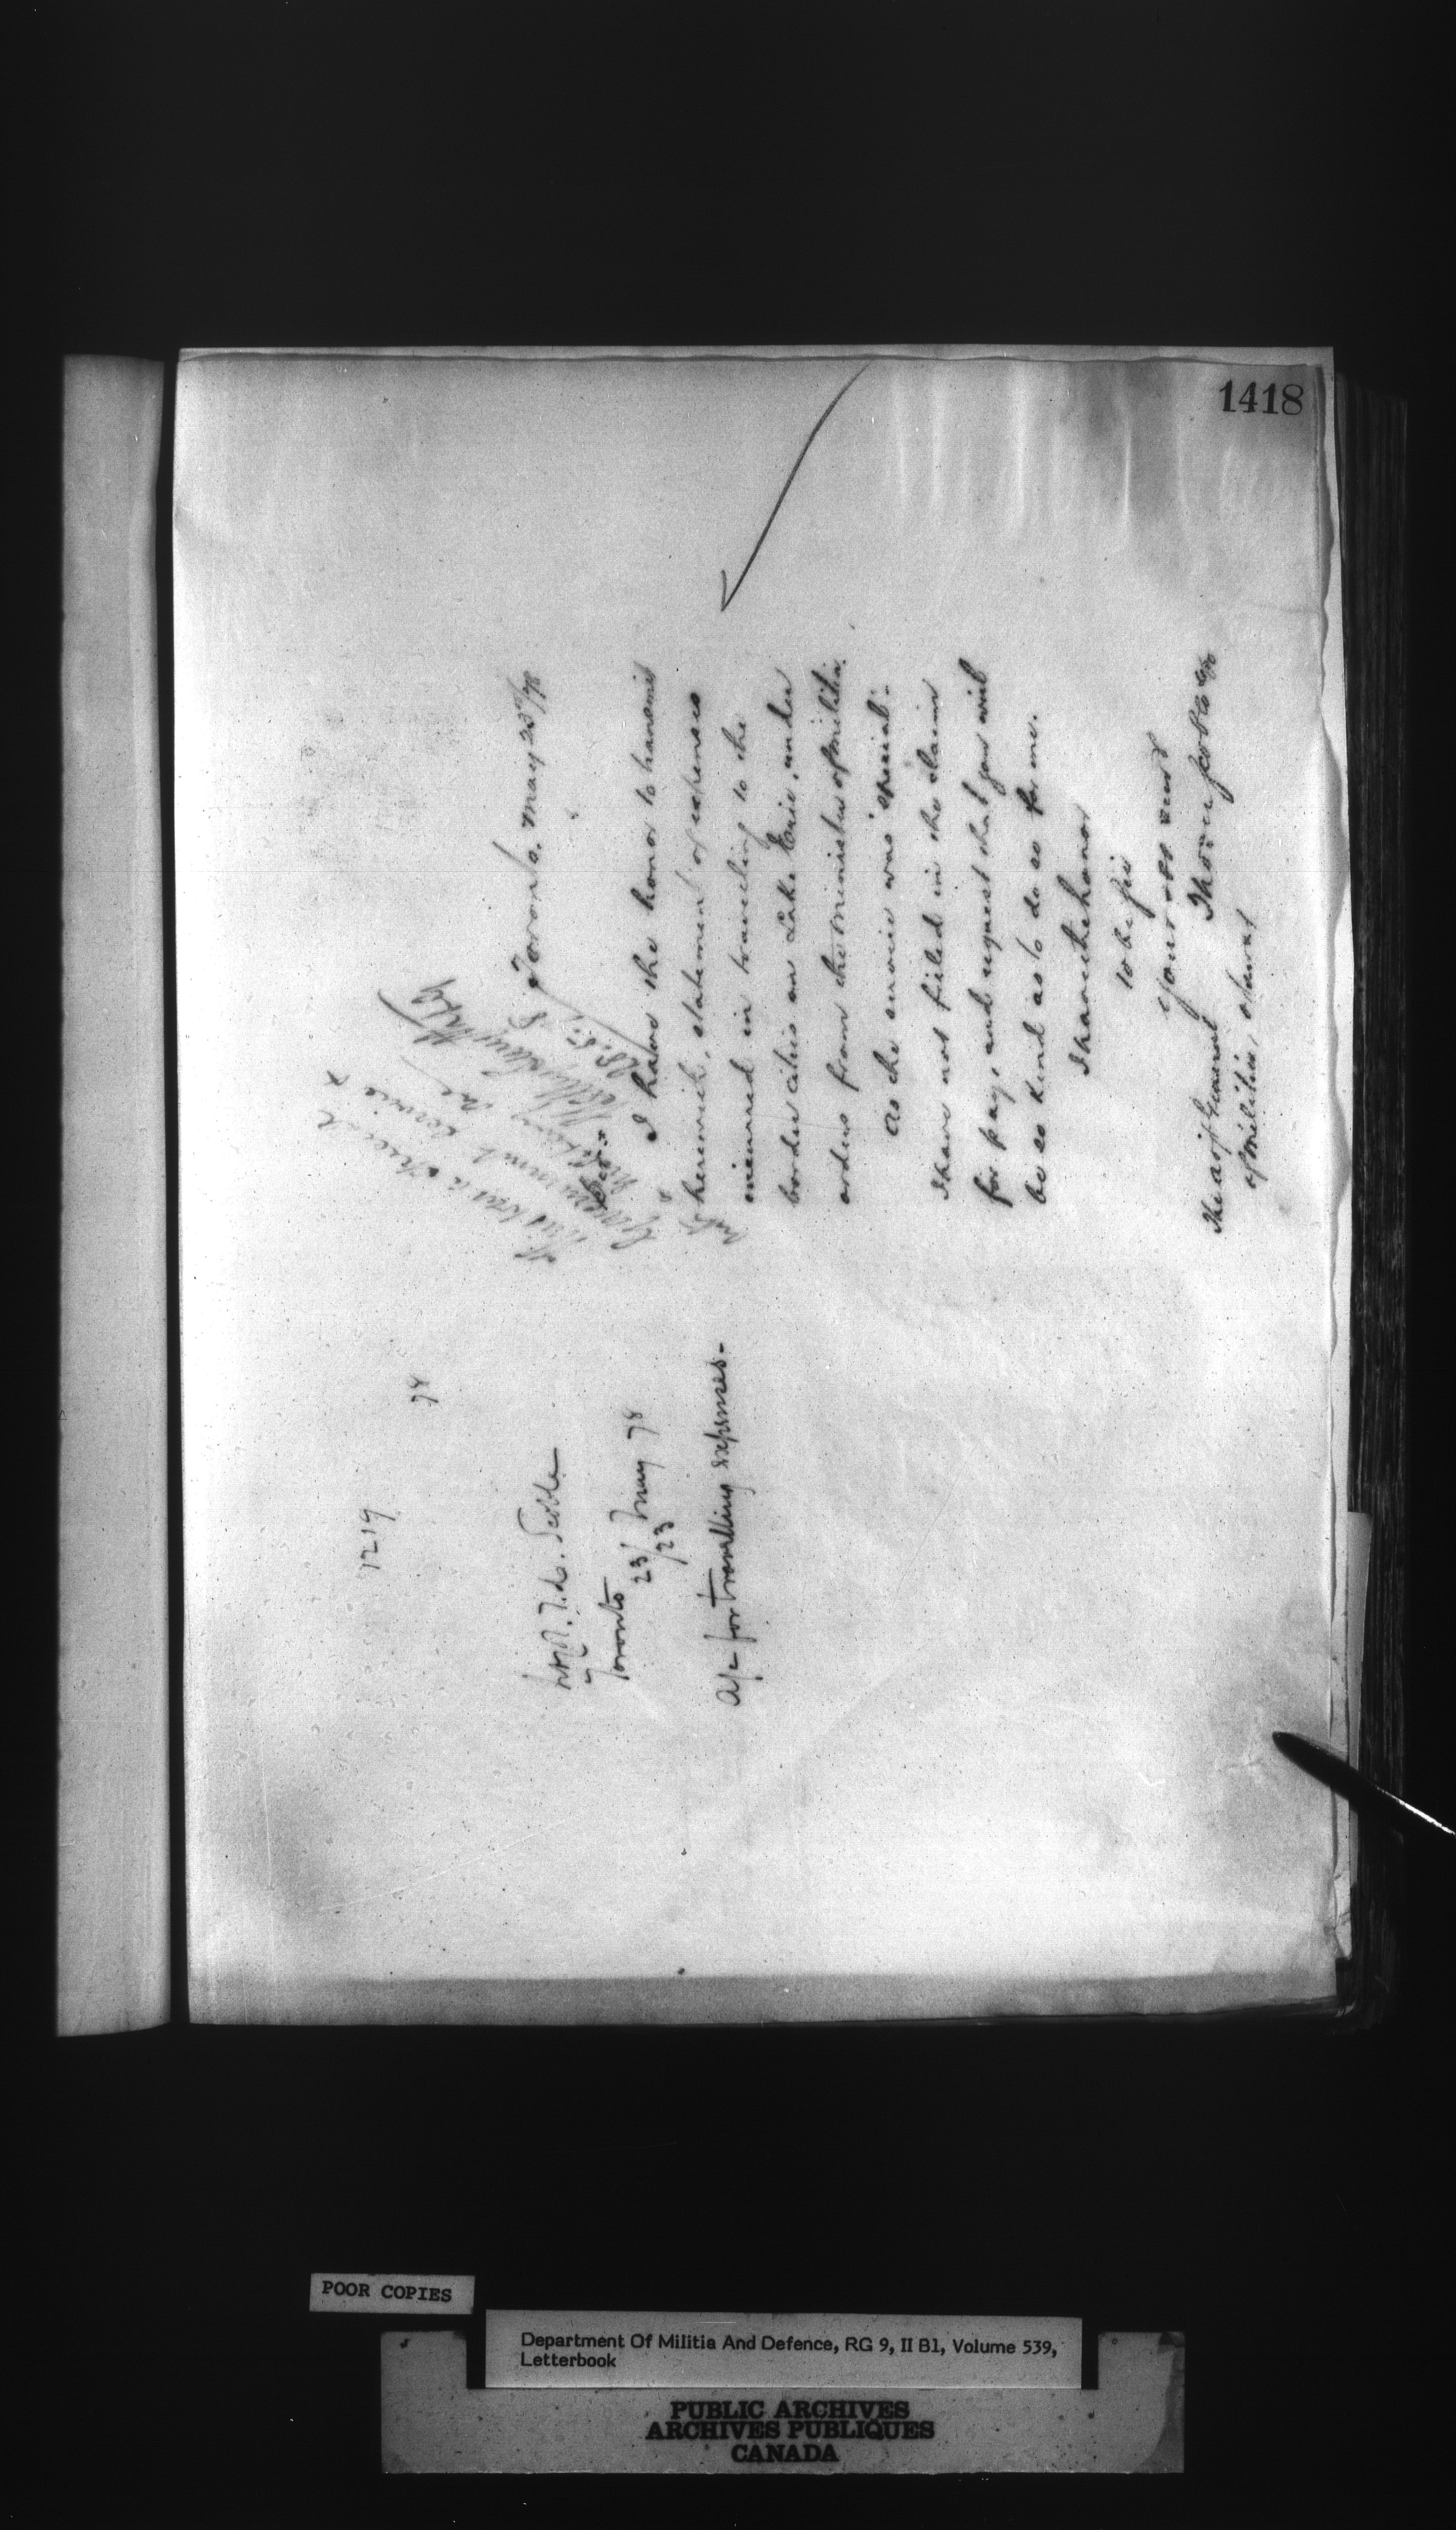 1418
1219
78
T. C. Scoble
Toronto
23 May 78
23
a/c for travelling expenses.-
This was a special
Government service &
28.5.
Toronto. May 23rd/78
I have the honor to transmit
herewith, statement of expenses
incurred in travelling to the
border cities on Lake Erie, under
orders from the Minister of Militia.
As the service was "special"-
I have not filled in the claim
for pay, and request that you will
be so kind as to do so for me.
I have the honor
to be Sir
your obt servt
Thos. C. Scoble
The adjt General
of Militia, Ottawa
POOR COPIES
Department Of Militia And Defence, RG 9, II B1, Volume 539,
Letterbook
PUBLIC ARCHIVES
ARCHIVES PUBLIQUES
CANADA